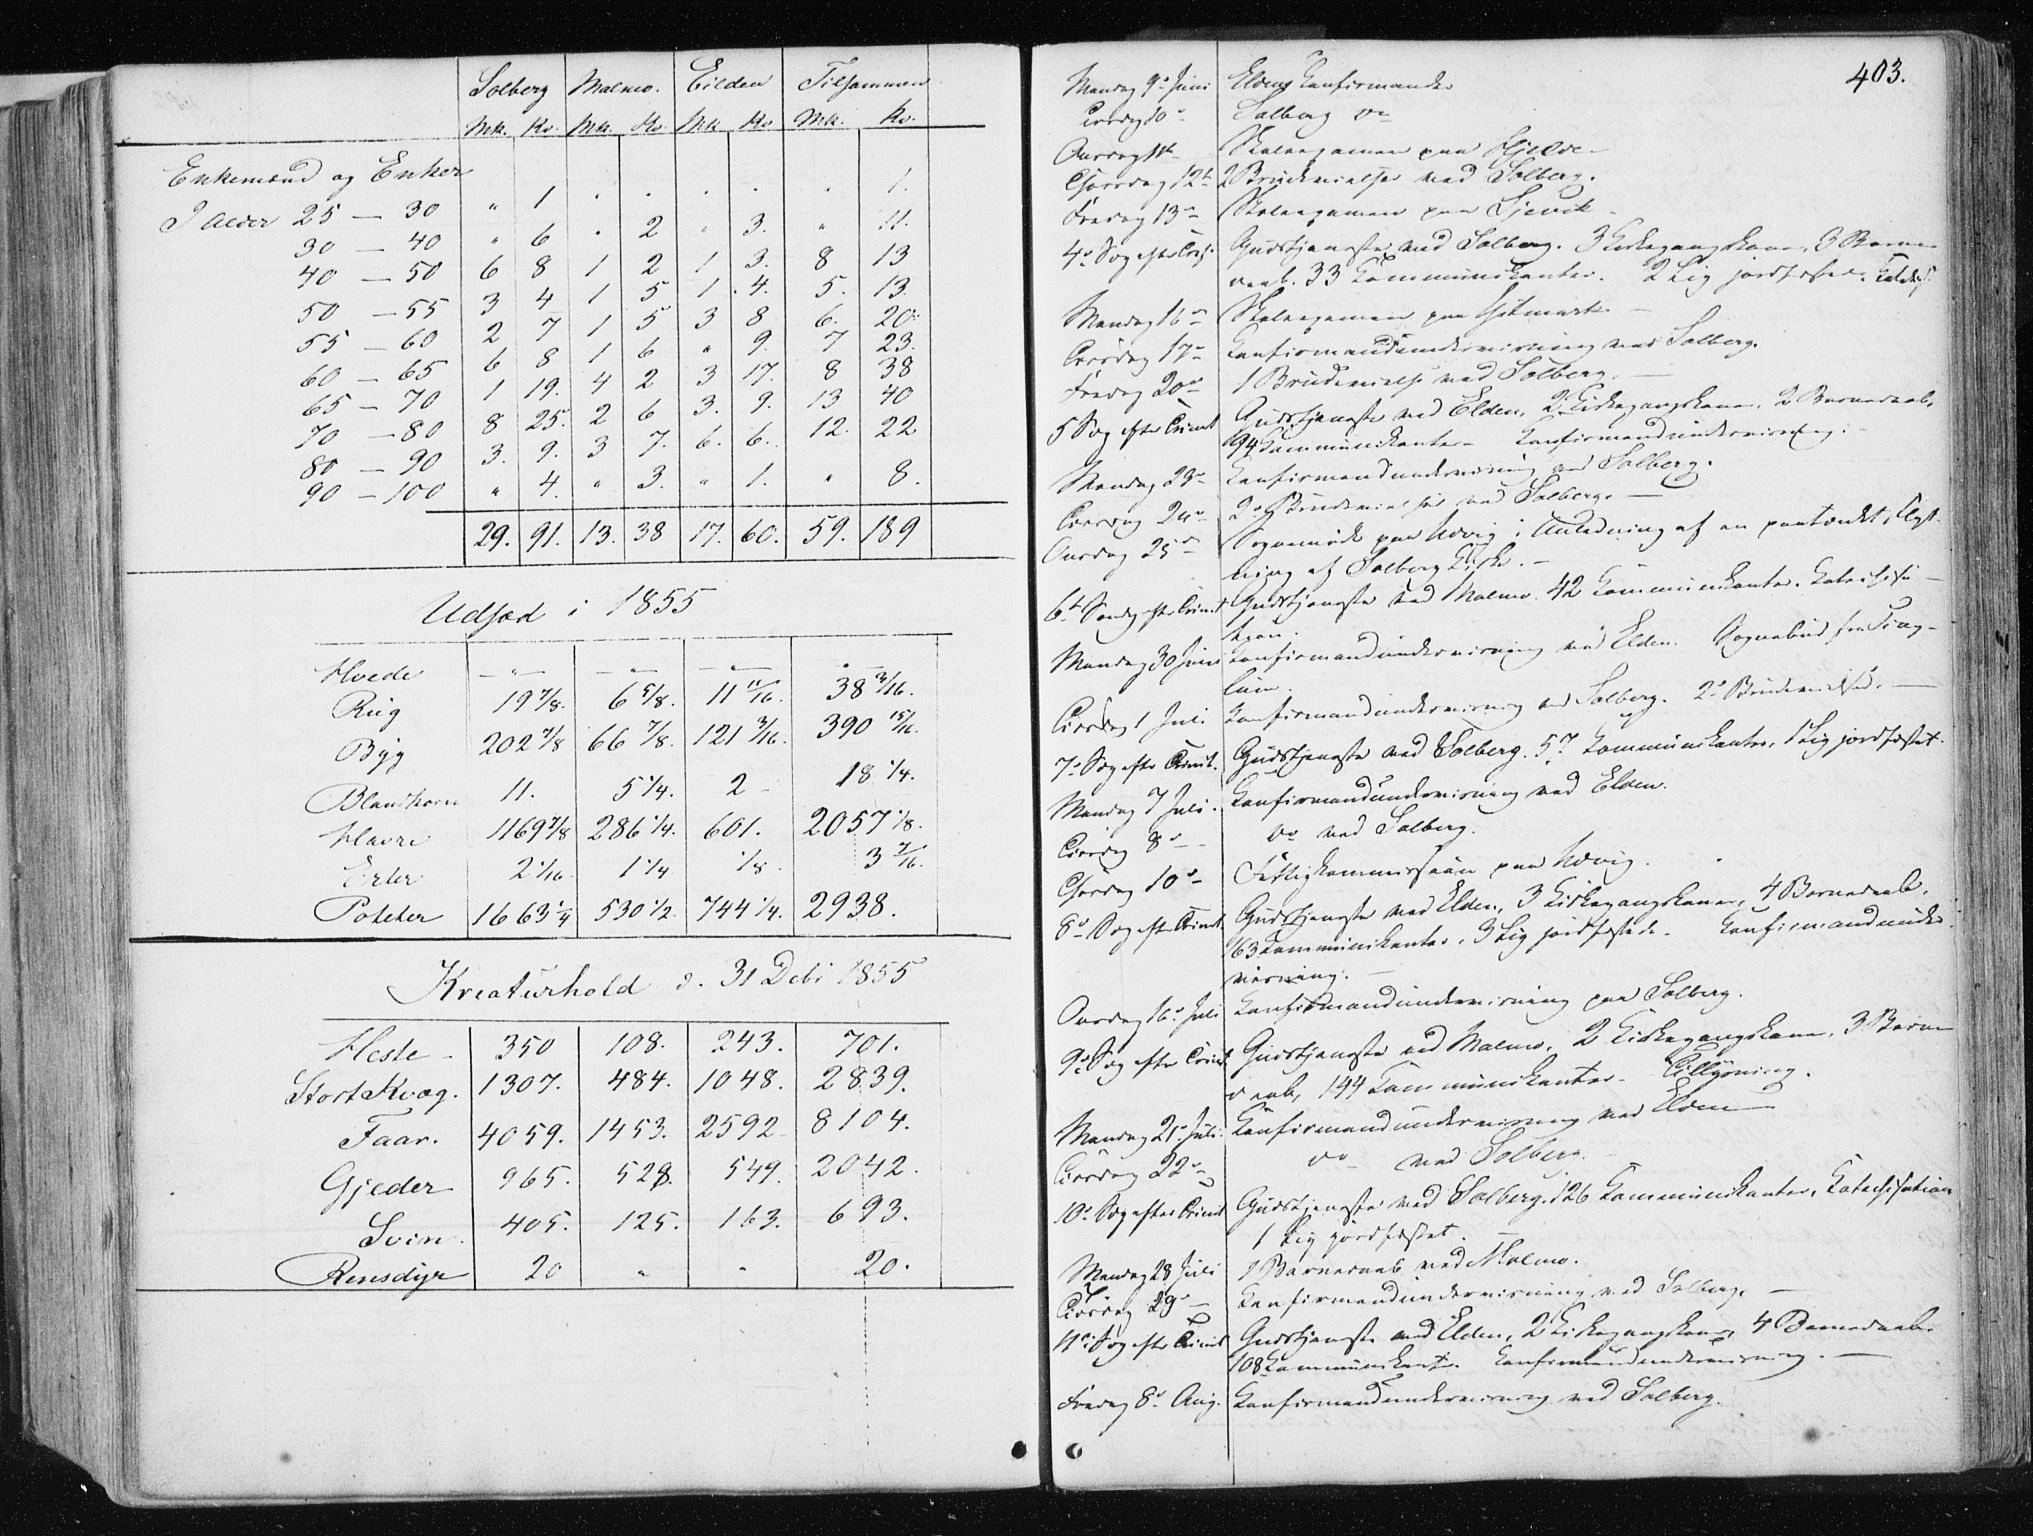 Solberg Malmo. Eilden Tilsammen
Mk. Kv. Mk. Kv. Mk Kv. Mk. Kv.
Enkemænd og Enker
I Alder 25 — 30 " 1 . . . . . 1.
30 — 40 " 6 . 2 " 3. " 11.
40 — 50 6 8 1 2 1 3. 8 13
50 — 55 3 4 1 5 1. 4. 5. 13.
55 — 60 2 7 1 5 3 8 6. 20.
60 — 65 6 8 1 6 " 9. 7 23.
65 — 70 1 19. 4 2 3 17. 8 38
70 — 80 8 25. 2 6 3. 9. 13 40
80 — 90 3. 9. 3 7. 6. 6. 12. 22
90 — 100 " 4. " 3. " 1. " 8.
29. 91. 13. 38 17. 60. 59. 189
Udsæd i 1855
Hvede " " " "
Rug 19 7/8. 6 5/8. 11 11/16. 38 3/16.
Byg 202 7/8 66 7/8. 121 3/16. 390 15/16.
Blandkorn 11. 5 1/4. 2 - 18 1/4.
Havre 1169 7/8 286 1/4. 601. 2057 1/8.
Erter 2 1/16 1 1/4 1/8. 3 7/16.
Poteter 1663 1/4 530 1/2. 744 1/4. 2938.
Kreaturhold d. 31 Debr 1855
Heste - 350 108. 243. 701.
Stort Kvæg. 1307. 484. 1048. 2839.
Faar. 4059. 1453. 2592 8104.
Gjeder 965. 528. 549. 2042.
Svin. 405. 125. 163. 693.
Rensdyr 20 " " 20.
403.
Mandag 9de Juni Eldens Konfirmander
Tirsdag 10de Solberg do
Onsdag 11te Skoleexamen paa
Thorsdag 12te 2 Brudevielser ved Solberg.
Fredag 13de Skoleexamen paa
4de Søg efter Trin. Gudstjeneste ved Solberg. 3 Kirkegangskoner, 3 Barne
daab. 33 Kommunikanter. 2 Lig jordfæstede.
Mandag 16de Skoleexamen paa
Tirsdag 17de Konfirmandundervisning ved Solberg.
Fredag 20de 1 Brudevielse ved Solberg. —
5 Søg efter Trinit Gudstjeneste ved Elden, 2 Kirkegangskoner, 2 Barnedaab.
194 Kommunikanter - Konfirmandundervisning.
Mandag 23de Konfirmandundervisning ved Solberg.
Tirsdag 24de 2de Brudevielser ved Solberg. —
Onsdag 25de Sognemøde paa i Anledning af en paatænkt Flyt-
ning af Solberg Kirke. —
6te Søndag efter Trinit Gudstjeneste ved Malmo. 42 Kommunikanter. Katechisa-
tion.
Mandag 30 Juni Konfirmandundervisning ved Elden. Sognebud

Tirsdag 1 Juli Konfirmandundervisning ved Solberg. 2de Brudevielser. —
7de Søg efter Trinit. Gudstjeneste ved Solberg. 57 Kommunikanter, 1 Lig jordfæstet.
Mandag 7 Juli. Konfirmandundervisning ved Elden.
Tirsdag 8de - do ved Solberg.
Thorsdag 10de - Fattigkommission paa
8de Søg efter Trinit Gudstjeneste ved Elden, 3 Kirkegangskoner, 4 Barnedaab.
163 Kommunikanter, 3 Lig jordfæstede. Konfirmandunder
visning. —
Onsdag 16de Juli Konfirmandundervisning paa Solberg.
9de Søg efter Trinit Gudstjeneste ved Malmo, 2 Kirkegangskoner, 3 Barne
daab, 144 Kommunikanter. Tillysning.
Mandag 21de Juli. Konfirmandundervisning ved Elden
Tirsdag 22de do ved Solberg.
10de Søg efter Trinit Gudstjeneste ved Solberg. 126 Kommunikanter, Katechisation
1 Lig jordfæstet.
Mandag 28 Juli 1 Barnedaab ved Malmo.
Tirsdag 29de — Konfirmandundervisning ved Solberg. —
11te Søg efter Trinit Gudstjeneste ved Elden, 2 Kirkegangskoner, 4 Barnedaab.
108 Kommunikanter. Konfirmandundervisning. —
Fredag 8de Aug. Konfirmandundervisning ved Solberg.